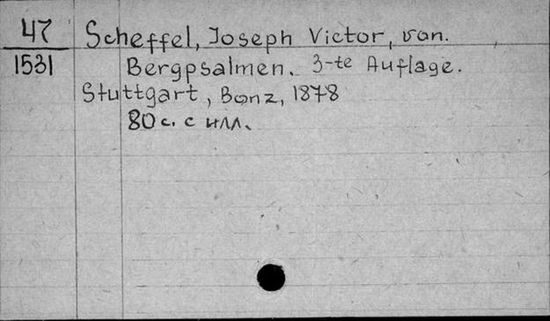 47 Scheffel, Joseph Victor, von.
1531 Bergpsalmen. 3-te Auflage.
Stuttgart, Bonz, 1878
80 с. с илл.